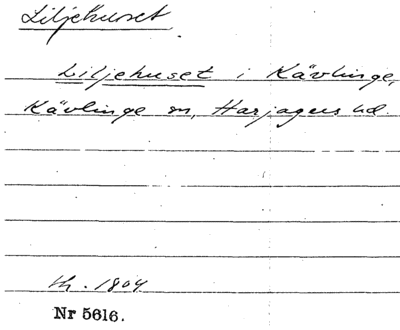 Liljehuset
Liljehuset i Kävlinge,
Kävlinge sn, Harjagers hd.
th. 1804
Nr 5616.